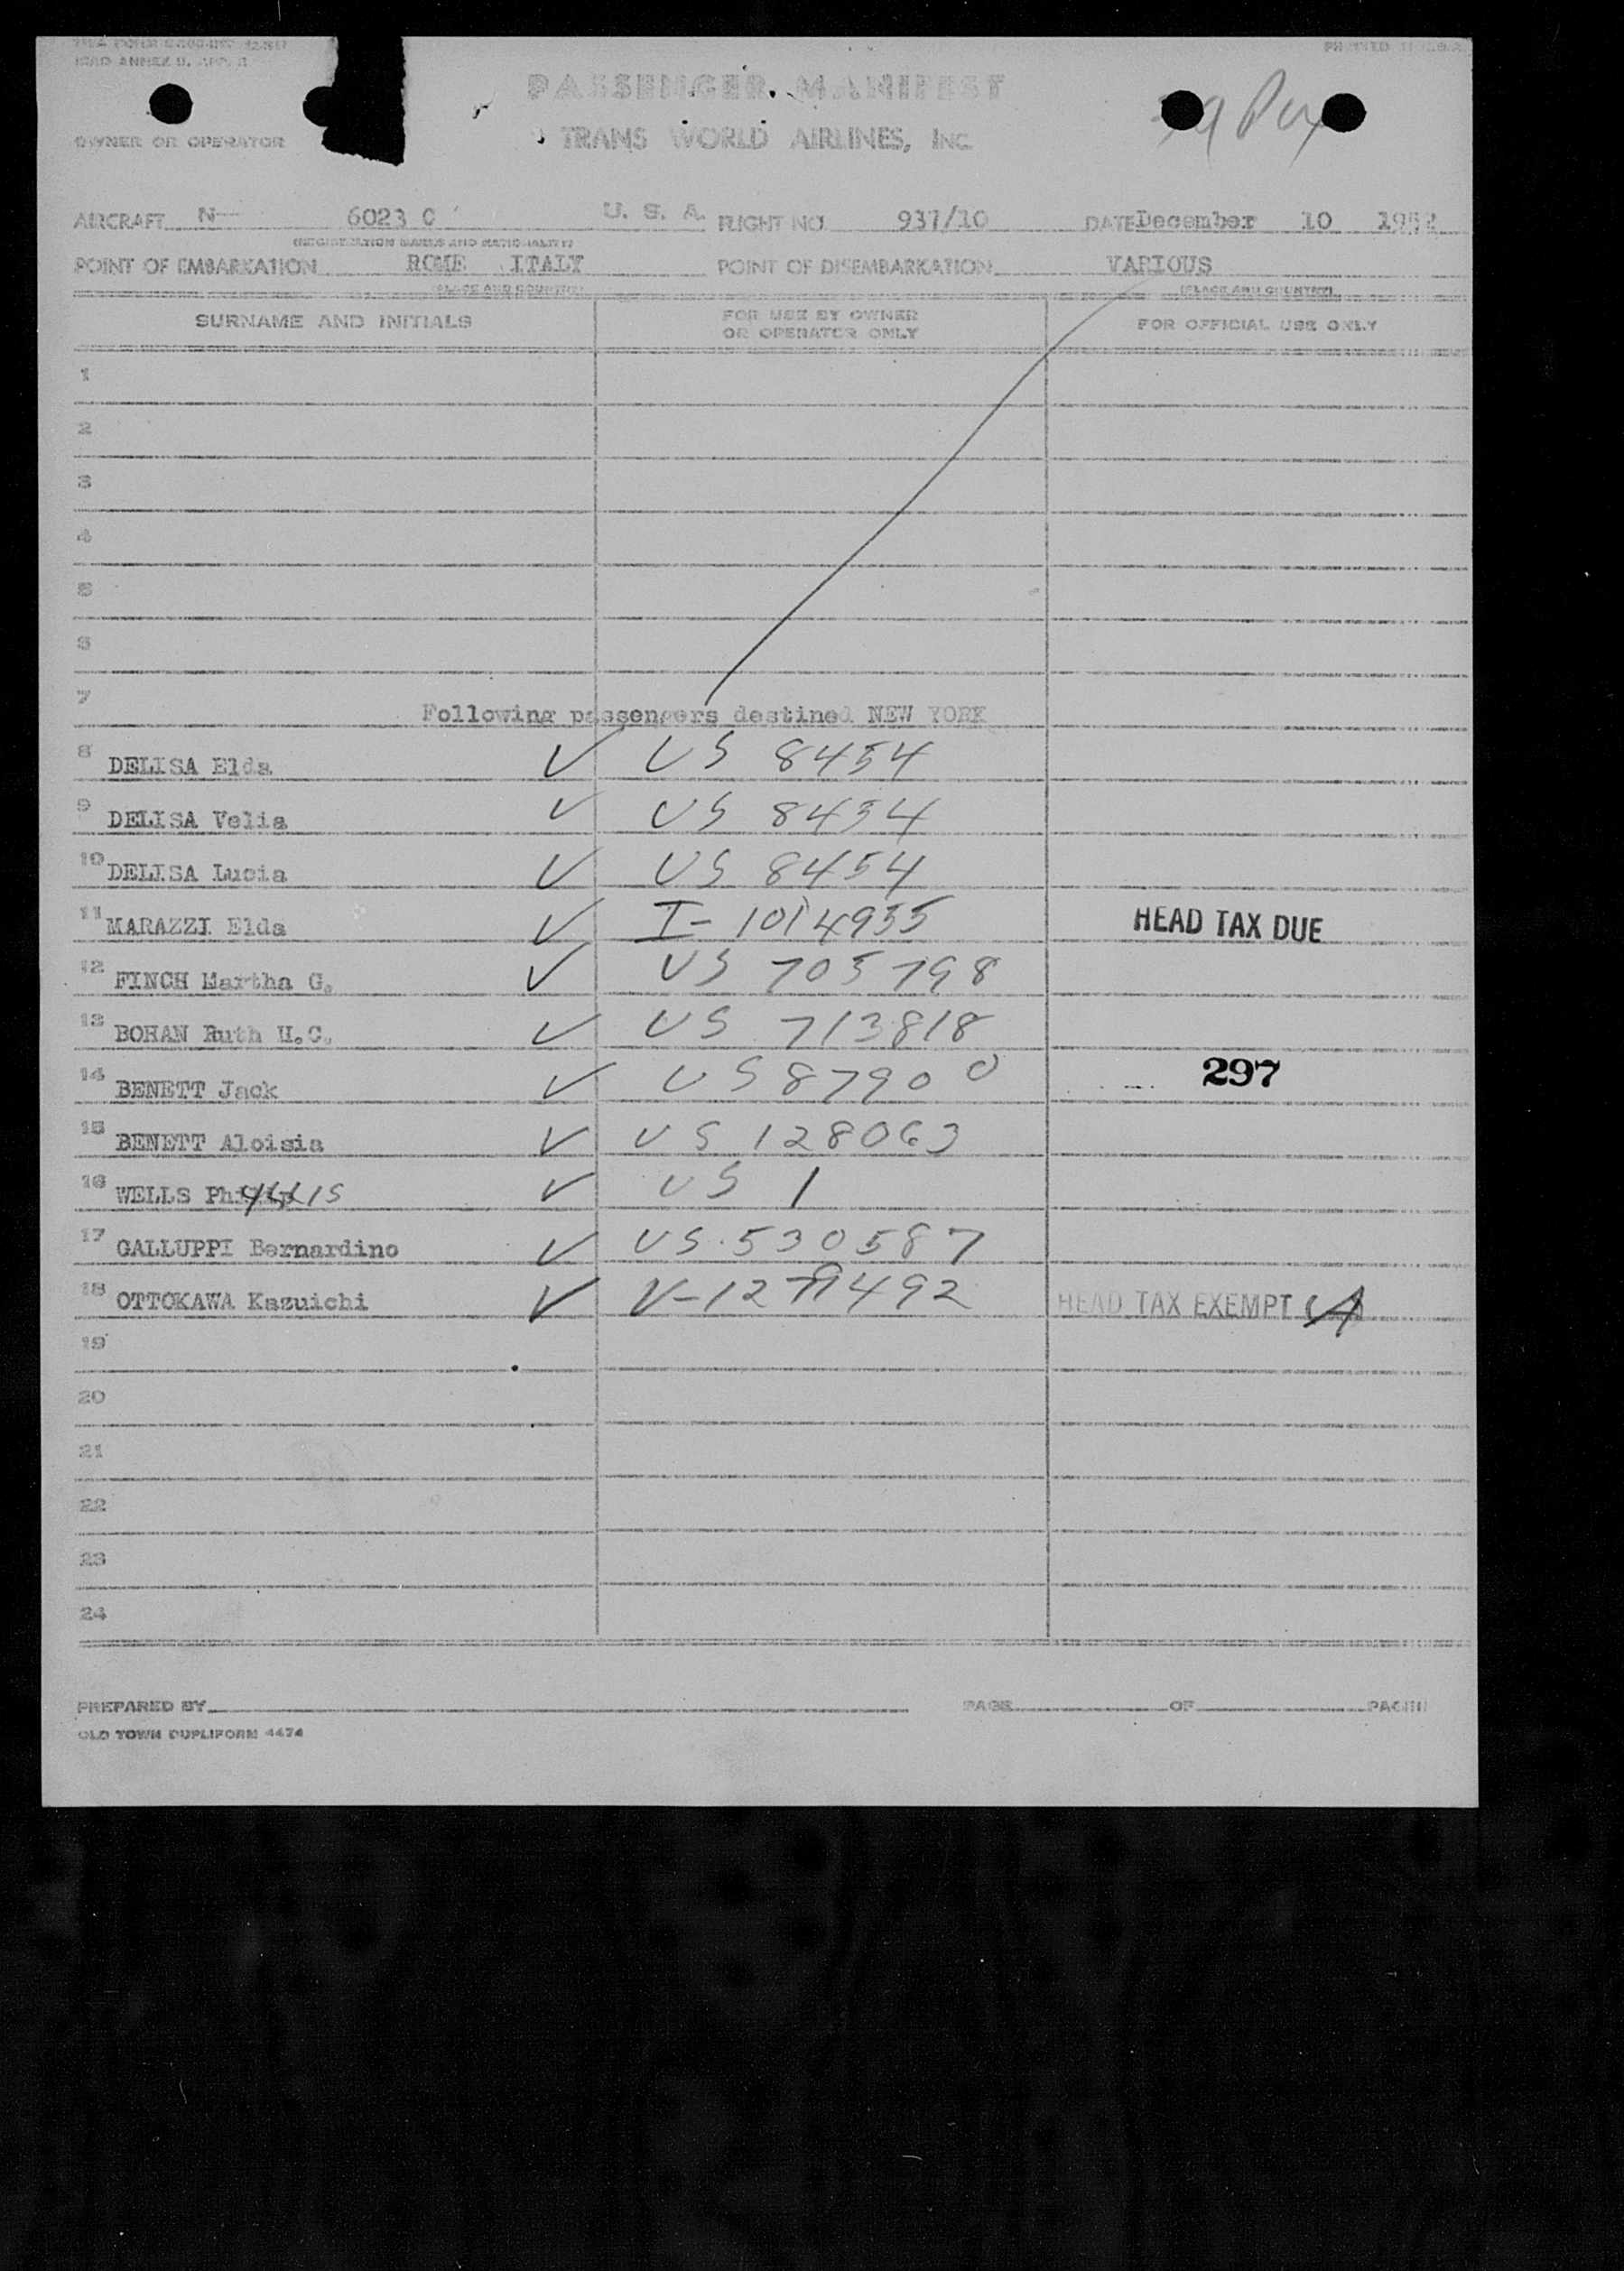 PASSENGER MANIFEST
OWNER OR OPERATOR TRANS WORLD AIRLINES, INC
AIRCRAFT N- 6023 C U. S. A. FLIGHT NO. 937/10 DATE December 10 1952
(REGISTRATION MARKS AND NATIONALITY)
POINT OF EMBARKATION ROME ITALY POINT OF DISEMBARKATION VARIOUS
(PLACE AND COUNTRY) (PLACE AND COUNTRY)
SURNAME AND INITIALS FOR USE BY OWNER OR OPERATOR ONLY FOR OFFICIAL USE ONLY
1
2
3
4
5
6
7 Following passengers destined NEW YORK
8 DELISA Elda ✓ US 8454
9 DELISA Velia ✓ US 8454
10 DELISA Lucia ✓ US 8454
11 MARAZZI Elda ✓ I-1014935 HEAD TAX DUE
12 FINCH Martha G. ✓ US 705798
13 BOHAN Ruth H.C. ✓ US 713818
14 BENETT Jack ✓ US 87900 297
15 BENETT Aloisia ✓ US 128063
16 WELLS Phyllis ✓ US 1
17 GALLUPPI Bernardino ✓ US 530587
18 OTTOKAWA Kazuichi ✓ HEAD TAX EXEMPT
19
20
21
22
23
24
PREPARED BY PAGE OF PAGES
OLD TOWN DUPLIFORM 4474